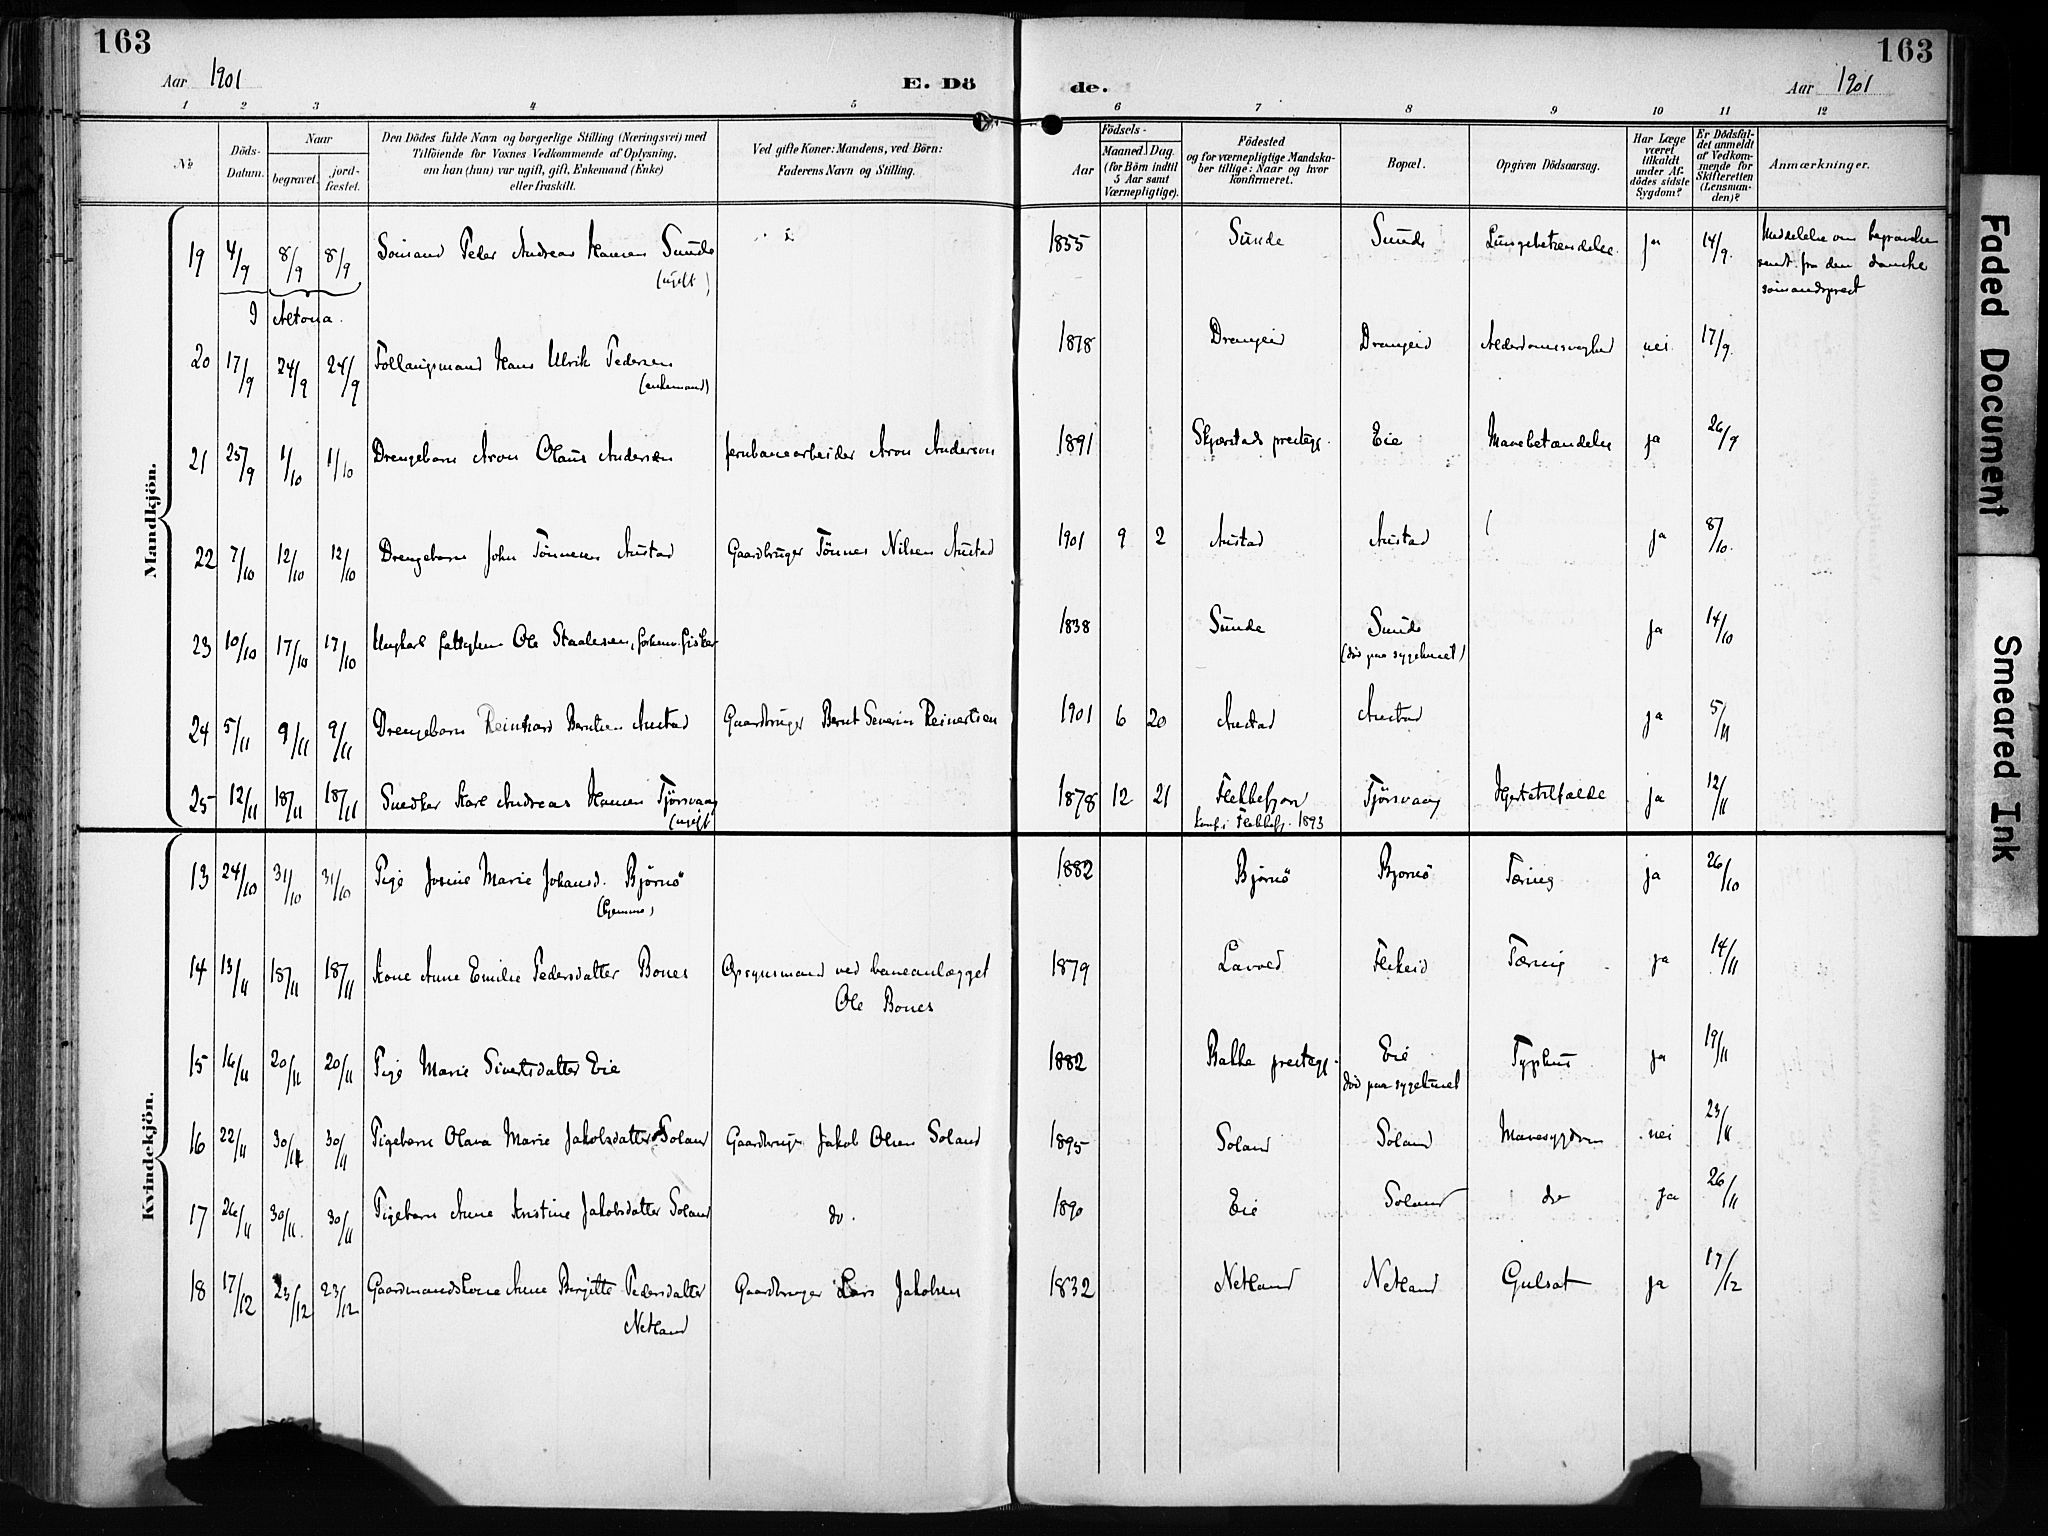 163
163
Aar 1901
E. Dö
de.
Aar 1901
1 2 3 4 5 6 7 8 9 10 11 12
No
Döds-
Datum.
Naar
begravet.
jord-
fæstet.
Den Dödes fulde Navn og borgerlige Stilling (Næringsvei) med
Tilföiende for Voxnes Vedkommende af Oplysning,
om han (hun) var ugift, gift, Enkemand (Enke)
eller fraskilt.
Ved gifte Koner: Mandens, ved Börn:
Faderens Navn og Stilling.
Födsels-
Aar
Maaned. Dag.
(for Börn indtil
5 Aar samt
Værnepligtige).
Födested
og for værnepligtige Mandska-
ber tillige: Naar og hvor
konfirmeret.
Bopæl.
Opgiven Dödsaarsag.
Har Læge
været
tilkaldt
under Af-
dödes sidste
Sygdom?
Er Dödsfal-
det anmeldt
af Vedkom-
mende for
Skifteretten
(Lensman-
den)?
Anmærkninger.
Mandkjön.
19 4/9 8/9 8/9 Sömand Peder Andreas Hansen Sunde 1855 Sunde Sunde Lungebetændelse ja 14/9 Meddelelse om begravelsen
(ugift) sendt fra den danske
sömandsprest
I Altona.
20 17/9 24/9 24/9 Follaugsmand Hans Ulrik Pedersen 1818 Drangeid Drangeid Alderdomssvaghed nei. 17/9
(enkemand)
21 25/9 1/10 1/10 Drengebarn Aron Olaus Andersen jernbanearbeider Aron Anderson 1891 prestegj. Eie Mavebetændelse ja 26/9
22 7/10 12/10 12/10 Drengebarn John Tönnesen Austad Gaardbruger Tönnes Nilsen Austad 1901 9 2 Austad Austad ja 8/10
23 10/10 17/10 17/10 Ungkarl fattiglem Ole Staalesen, forhenv. fisker 1838 Sunde Sunde ja 14/10
(död paa sygehuset)
24 5/11 9/11 9/11 Drengebarn Reinhard Berntsen Austad Gaardbruger Bernt Severin Reinertsen 1901 6 20 Austad Austad ja 5/11
25 12/11 18/11 18/11 Snedker Karl Andreas Hansen Tjörsvaag 1878 12 21 Flekkefjord Tjörsvaag Hjertetilfælde ja 12/11
(ugift) konf. i Flekkefj. 1893
Kvindekjön.
13 24/10 31/10 31/10 Pige Josine Marie Johansd. Björnö 1882 Björnö Bjornö Tæring ja 26/10
(hjemme)
14 13/11 18/11 18/11 Kone Anne Emilie Pedersdatter Bones Opsynsmand ved baneanlægget 1879 Lavold Fleikeid Tæring ja 14/11
Ole Bones
15 16/11 20/11 20/11 Pige Marie Sivertsdatter Eie 1882 Bakke prestegj. Eie Typhus ja 19/11
död paa sygehuset
16 22/11 30/11 30/11 Pigebarn Olava Marie Jakobsdatter Soland Gaardbruger Jakob Olsen Soland 1895 Soland Soland Mavesygdom nei 23/11
17 26/11 30/11 30/11 Pigebarn Anne Kristine Jakobsdatter Soland do. 1890 Eie Soland do ja 26/11
18 17/12 23/12 23/12 Gaardmandskone Anne Birgitte Pedersdatter Gaardbruger Lars Jakobsen 1832 Netland Netland Gulsot ja 17/12
Netland
Faded Document
Smeared Ink